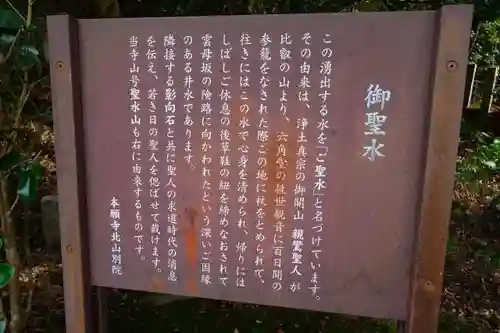 御聖水
この湧出する水を「ご聖水」と名づけています。
その由来は、浄土真宗の御開山 親鸞聖人 が
比叡の山より、六角堂の救世観音に百日間の
参籠をなされた際この地に杖をとめられて、
往きにはこの水で心身を清められ、帰りには
しばしご休息の後草鞋の紐を締めなおされて
雲母坂の険路に向かわれたという深いご因縁
のある井水であります。
隣接する影向石と共に聖人の求道時代の消息
を伝え、若き日の聖人を偲ばせて戴けます。
当寺山号聖水山も右に由来するものです。
本願寺北山別院